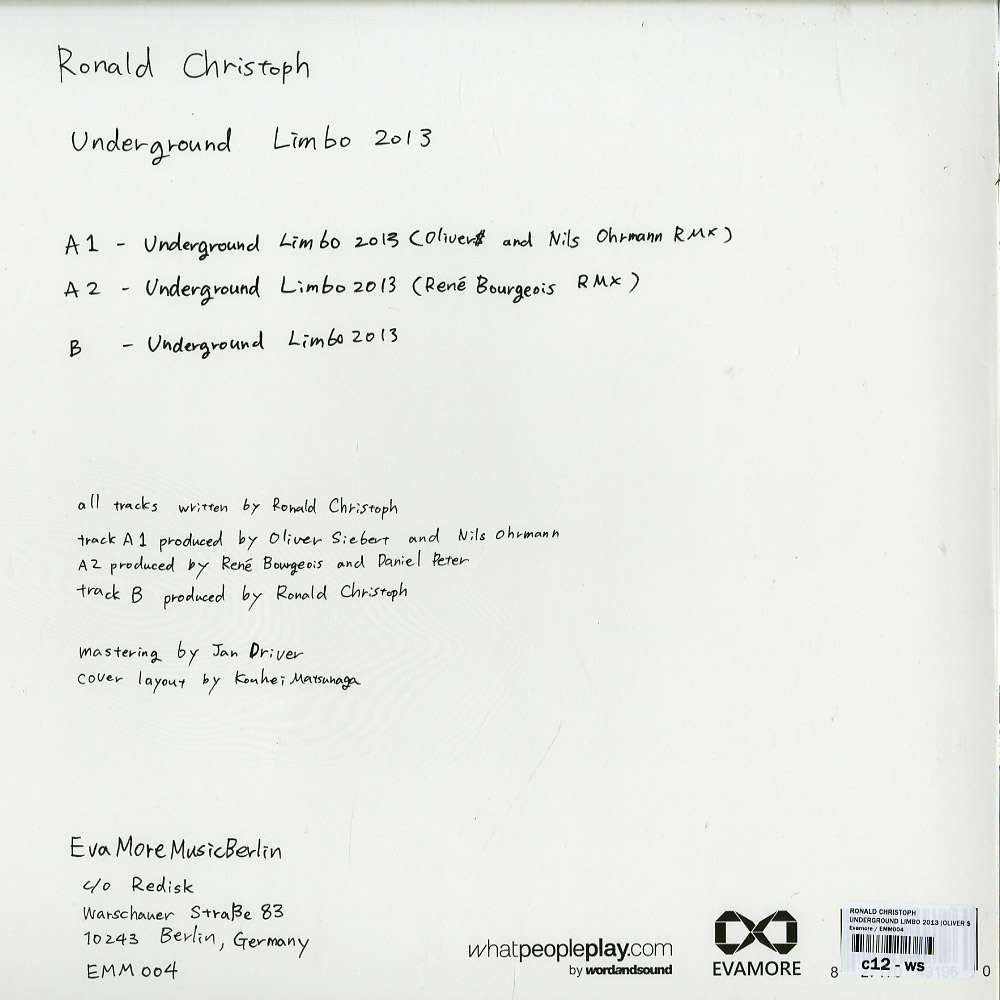 Ronald Christoph
Underground Limbo 2013
A1 - Underground Limbo 2013 (Oliver$ and Nils Ohrmann RMX)
A2 - Underground Limbo 2013 (René Bourgeois RMX)
B - Underground Limbo 2013
all tracks written by Ronald Christoph
track A1 produced by Oliver Siebert and Nils Ohrmann
A2 produced by René Bourgeois and Daniel Peter
track B produced by Ronald Christoph
mastering by Jan Driver
cover layout by Kouhei Matsunaga
Eva More MusicBerlin
c/o Redisk
Warschauer Straße 83
10243 Berlin, Germany
EMM 004
whatpeopleplay.com
by wordandsound
EVAMORE
RONALD CHRISTOPH
UNDERGROUND LIMBO 2013 (OLIVER $
Evamore / EMM004
c12 - ws
8 0